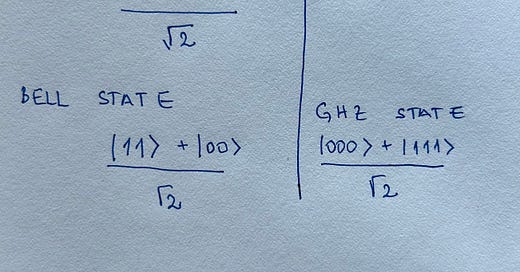 √2
BELL STATE
|11> + |00>
√2
GHZ STATE
|000> + |111>
√2